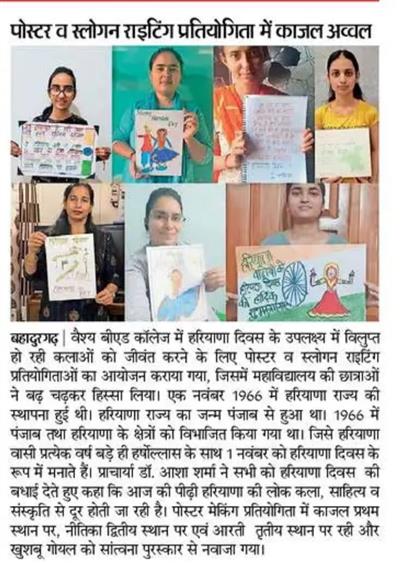 पोस्टर व स्लोगन राइटिंग प्रतियोगिता में काजल अव्वल
बहादुरगढ़ | वैश्य बीएड कॉलेज में हरियाणा दिवस के उपलक्ष्य में विलुप्त
हो रही कलाओं को जीवंत करने के लिए पोस्टर व स्लोगन राइटिंग
प्रतियोगिताओं का आयोजन कराया गया, जिसमें महाविद्यालय की छात्राओं
ने बढ़ चढ़कर हिस्सा लिया। एक नवंबर 1966 में हरियाणा राज्य की
स्थापना हुई थी। हरियाणा राज्य का जन्म पंजाब से हुआ था। 1966 में
पंजाब तथा हरियाणा के क्षेत्रों को विभाजित किया गया था। जिसे हरियाणा
वासी प्रत्येक वर्ष बड़े ही हर्षोल्लास के साथ 1 नवंबर को हरियाणा दिवस के
रूप में मनाते हैं। प्राचार्या डॉ. आशा शर्मा ने सभी को हरियाणा दिवस की
बधाई देते हुए कहा कि आज की पीढ़ी हरियाणा की लोक कला, साहित्य व
संस्कृति से दूर होती जा रही है। पोस्टर मेकिंग प्रतियोगिता में काजल प्रथम
स्थान पर, नीतिका द्वितीय स्थान पर एवं आरती तृतीय स्थान पर रही और
खुशबू गोयल को सांत्वना पुरस्कार से नवाजा गया।